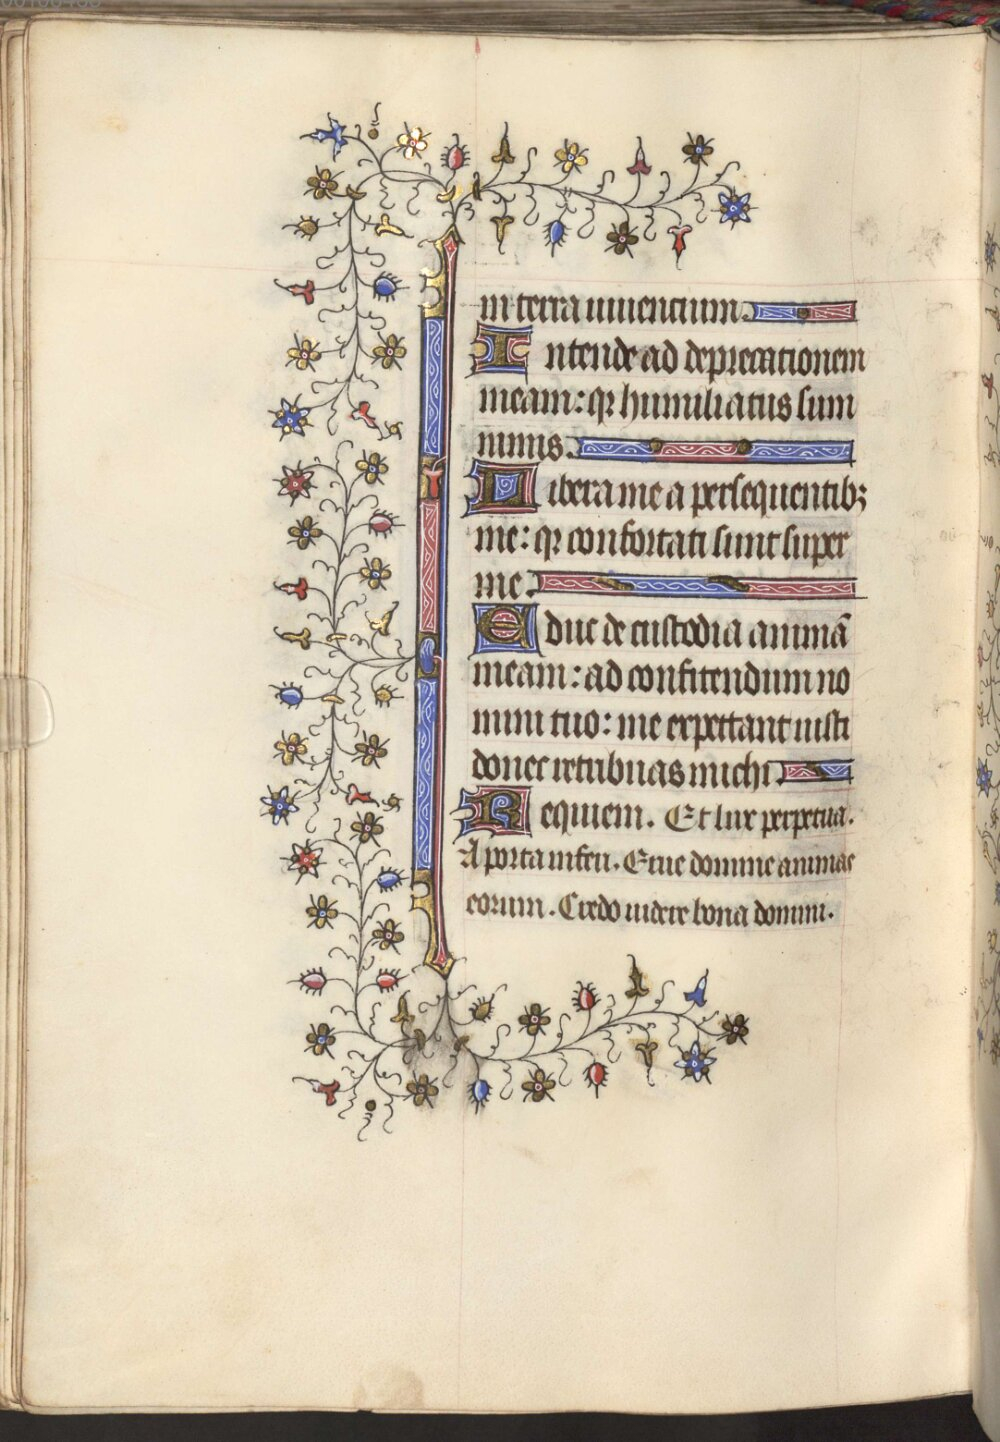 in terra viventium.
Intende ad deprecationem
meam: qr humiliatus sum
nimis.
Libera me a persequentibz
me: qr confortati sunt super
me.
Educ de custodia animã
meam: ad confitendum no
mini tuo: me expectant iusti
donec retribuas michi
Requiem. Et lux perpetua.
A porta inferi. Erue domine animas
eorum. Credo videre bona domini.